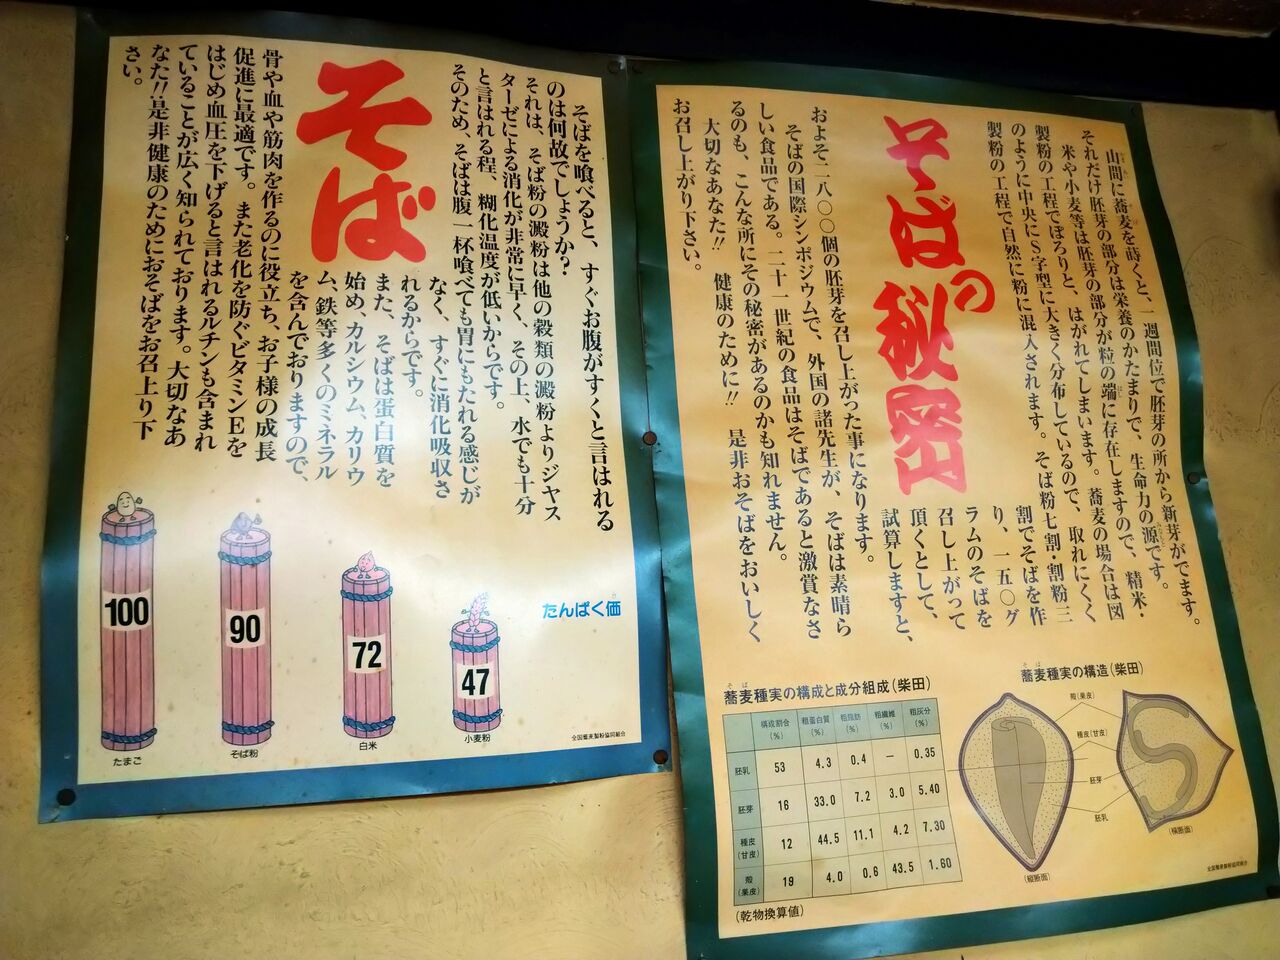 そば
そばを喰べると、すぐお腹がすくと言はれる
のは何故でしょうか?
それは、そば粉の澱粉は他の穀類の澱粉よりジヤス
ターゼによる消化が非常に早く、その上、水でも十分
と言はれる程、糊化温度が低いからです。
そのため、そばは腹一杯喰べても胃にもたれる感じが
なく、すぐに消化吸収さ
れるからです。
また、そばは蛋白質を
始め、カルシウム、カリウ
ム、鉄等多くのミネラル
を含んでおりますので、
骨や血や筋肉を作るのに役立ち、お子様の成長
促進に最適です。また老化を防ぐビタミンEを
はじめ血圧を下げると言はれるルチンも含まれ
ていることが広く知られております。大切なあ
なた!!是非健康のためにおそばをお召上り下
さい。
たんぱく価
100
90
72
47
たまご
そば粉
白米
小麦粉
全国蕎麦製粉協同組合
そばの秘密
山間に蕎麦を蒔くと、一週間位で胚芽の所から新芽がでます。
それだけ胚芽の部分は栄養のかたまりで、生命力の源です。
米や小麦等は胚芽の部分が粒の端に存在しますので、精米・
製粉の工程でぽろりと、はがれてしまいます。蕎麦の場合は図
のように中央にS字型に大きく分布しているので、取れにくく
製粉の工程で自然に粉に混入されます。そば粉七割・割粉三
割でそばを作
り、一五〇グ
ラムのそばを
召し上がって
頂くとして、
試算しますと、
およそ二八〇〇個の胚芽を召し上がった事になります。
そばの国際シンポジウムで、外国の諸先生が、そばは素晴ら
しい食品である。二十一世紀の食品はそばであると激賞なさ
るのも、こんな所にその秘密があるのかも知れません。
大切なあなた!! 健康のために!! 是非おそばをおいしく
お召し上がり下さい。
蕎麦種実の構成と成分組成(柴田)
構成割合(%) 粗蛋白質(%) 粗脂肪(%) 粗繊維(%) 粗灰分(%)
胚乳 53 4.3 0.4 — 0.35
胚芽 16 33.0 7.2 3.0 5.40
種皮(甘皮) 12 44.5 11.1 4.2 7.30
殻(果皮) 19 4.0 0.6 43.5 1.60
(乾物換算値)
蕎麦種実の構造(柴田)
殻(果皮)
種皮(甘皮)
胚芽
胚乳
(縦断面)
(横断面)
全国蕎麦製粉協同組合